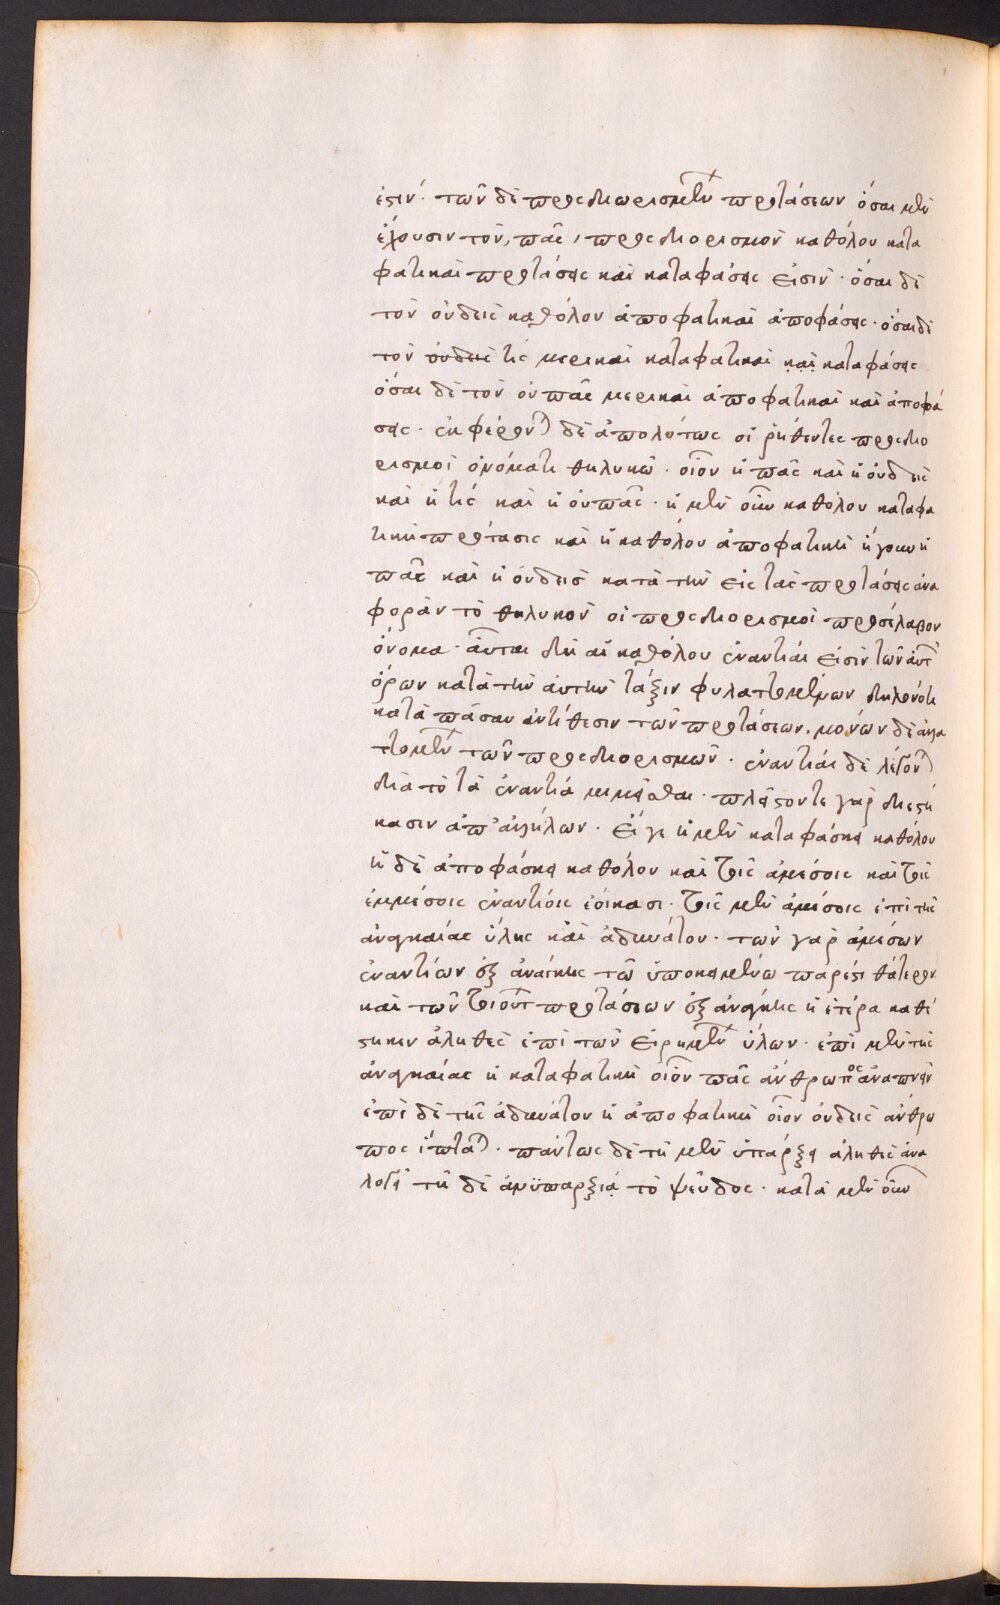 ἐστιν· τῶν δὲ προσδιωρισμένων προτάσεων ὅσαι μὲν
ἔχουσιν τὸν, πᾶς, προσδιορισμὸν καθόλου κατα
φατικαὶ προτάσεις καὶ καταφάσεις εἰσίν· ὅσαι δὲ
τὸν οὐδεὶς καθόλου ἀποφατικαὶ ἀποφάσεις· ὅσαι δὲ
τὸν οὐδεὶς τὶς μερικαὶ καταφατικαὶ καὶ καταφάσεις
ὅσαι δὲ τὸν οὐ πᾶς μερικαὶ ἀποφατικαὶ καὶ ἀποφά
σεις· ἐκφέρονται δὲ ἀπολύτως οἱ ῥηθέντες προσδιο
ρισμοὶ ὀνόματι θηλυκῶ· οἷον ἡ πᾶς καὶ ἡ οὐδεὶς
καὶ ἡ τὶς καὶ ἡ οὐ πᾶς· ἡ μὲν οὖν καθόλου καταφα
τικὴ πρότασις καὶ ἡ καθόλου ἀποφατικὴ ἤγουν ἡ
πᾶς καὶ ἡ οὐδεὶς κατὰ τὴν εἰς τὰς προτάσεις ἀνα
φορὰν τὸ θηλυκὸν οἱ προσδιορισμοὶ προσέλαβον
ὄνομα· αὗται δὴ αἱ καθόλου ἐναντίαι εἰσὶν τῶν αὐτῶν
ὅρων κατὰ τὴν αὐτὴν τάξιν φυλαττομένων δηλονότι
κατὰ πᾶσαν ἀντίθεσιν τῶν προτάσεων. μόνων δὲ ἀλλα
ττομένων τῶν προσδιορισμῶν· ἐναντίαι δὲ λέγονται
διὰ τὸ τὰ ἐναντία μιμεῖσθαι· πλεῖστον τε γὰρ διεστή
κασιν ἀπ' ἀλλήλων· εἴγε ἡ μὲν καταφάσκει καθόλου
ἡ δὲ ἀποφάσκει καθόλου καὶ τοῖς ἀμέσοις καὶ τοῖς
ἐμμέσοις ἐναντίοις ἐοίκασι· τοῖς μὲν ἀμέσοις ἐπὶ τῆς
ἀναγκαίας ὕλης καὶ ἀδυνάτου· τῶν γὰρ ἀμέσων
ἐναντίων ἐξ ἀνάγκης τῶ ὑποκειμένω πάρεστι θάτερον
καὶ τῶν τοιούτων προτάσεων ἐξ ἀνάγκης ἡ ἑτέρα καθέ
στηκεν ἀληθὲς ἐπὶ τῶν εἰρημένων ὑλῶν· ἐπὶ μὲν τῆς
ἀναγκαίας ἡ καταφατικὴ οἷον πᾶς ἄνθρωπος ἀναπνεῖ
ἐπὶ δὲ τῆς ἀδυνάτου ἡ ἀποφατικὴ οἷον οὐδεὶς ἄνθρω
πος ἵπταται· πάντως δὲ τῆ μὲν ὑπάρξει ἀληθὲς ἀνα
λογεῖ τῆ δὲ ἀνϋπαρξία τὸ ψεῦδος· κατὰ μὲν οὖν